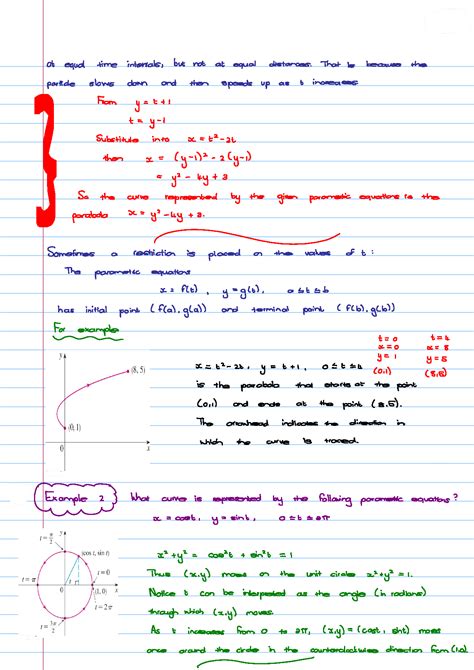 at equal time intervals, but not at equal distances. That is because the
particle slows down and then speeds up as t increases
From y = t + 1
t = y - 1
Substitute into x = t² - 2t
then x = (y-1)² - 2(y-1)
= y² - 4y + 3
So the curve represented by the given parametric equations is the
parabola x = y² - 4y + 3.
Sometimes a restriction is placed on the values of t :
The parametric equations
x = f(t) , y = g(t) , a ≤ t ≤ b
has initial point (f(a), g(a)) and terminal point (f(b), g(b))
For example
t = 0 t = 4
x = 0 x = 8
y = 1 y = 5
(0,1) (8,5)
y
(8, 5)
(0, 1)
0
x
x = t² - 2t, y = t + 1, 0 ≤ t ≤ 4
is the parabola that starts at the point
(0,1) and ends at the point (8,5).
The arrowhead indicates the direction in
which the curve is traced.
Example 2
What curve is represented by the following parametric equations?
x = cost, y = sint, 0 ≤ t ≤ 2π
t = π/2
y
(cos t, sin t)
t = π
t
t = 0
(1, 0)
0
x
t = 2π
t = 3π/2
x² + y² = cos²t + sin²t = 1
Thus (x,y) moves on the unit circle x² + y² = 1.
Notice t can be interpreted as the angle (in radians)
through which (x,y) moves.
As t increases from 0 to 2π, (x,y) = (cost, sint) moves
once around the circle in the counterclockwise direction from (1,0)